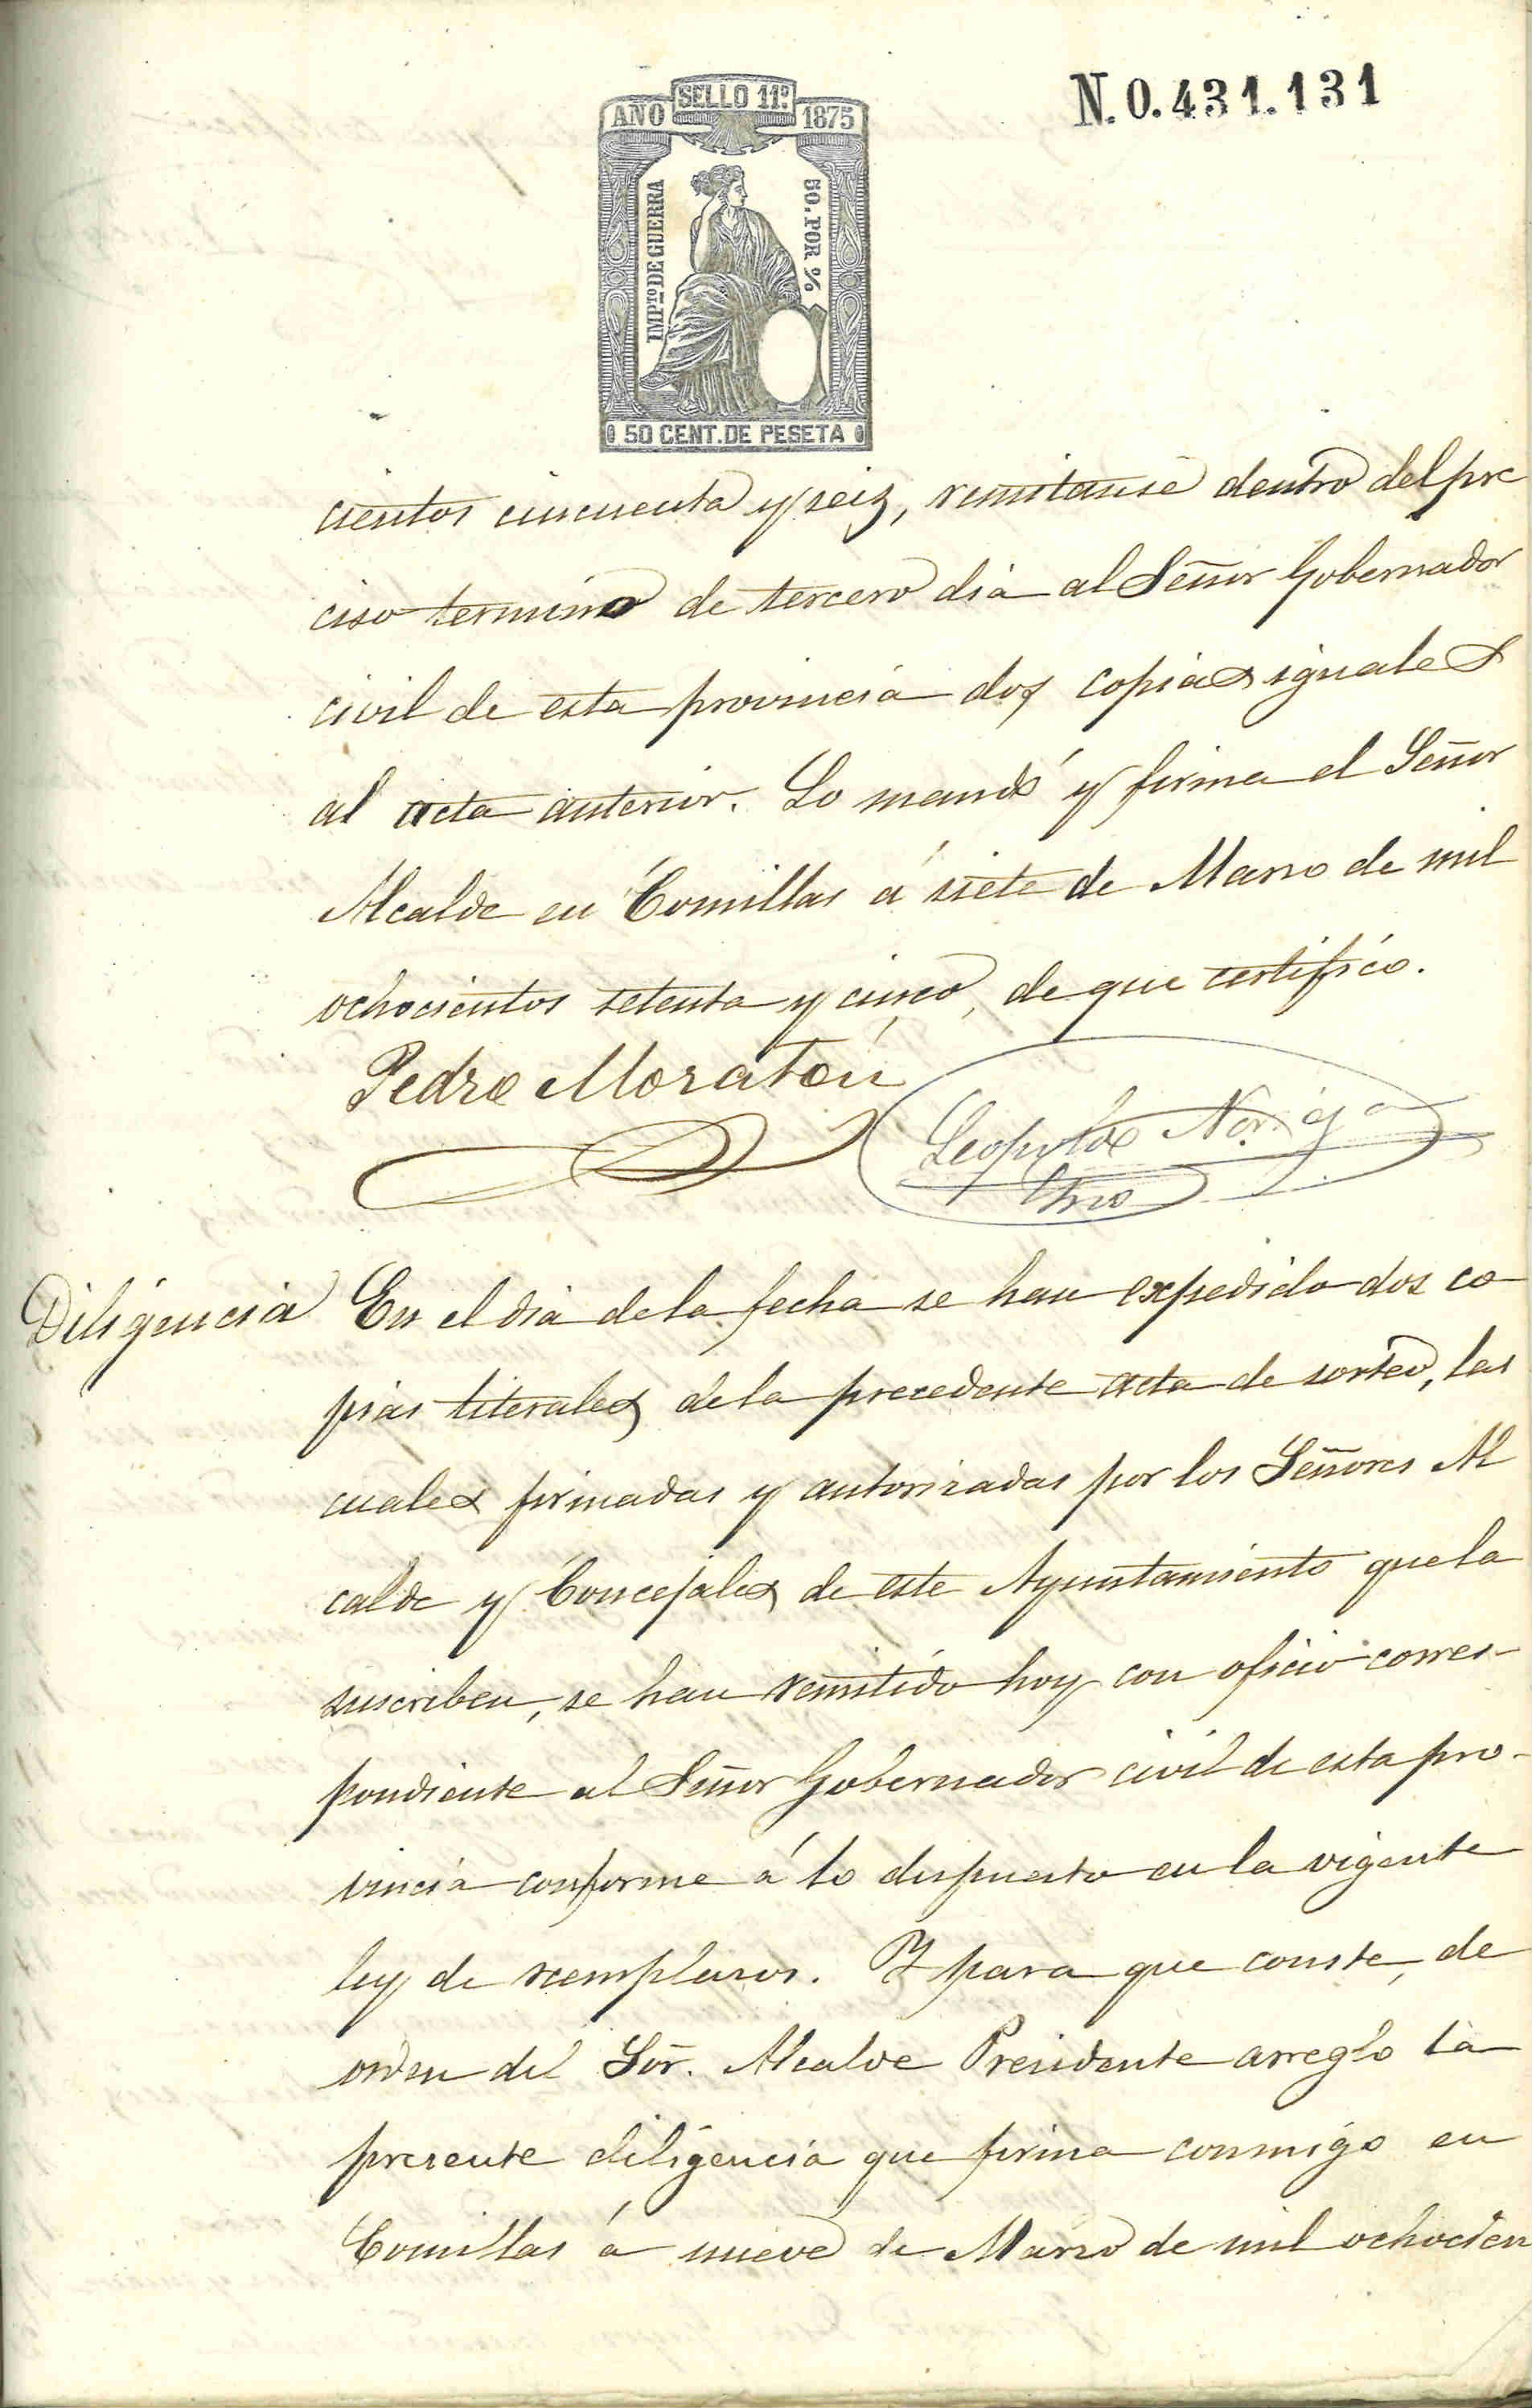 N. 0.431.131
SELLO 11º
AÑO 1875
IMPTO DE GUERRA
50. POR %
50 CENT. DE PESETA
cientos cincuenta y seis, remitanse dentro del pre
ciso termino de tercero dia al Señor Gobernador
civil de esta provincia dos copias iguales
al acta anterior. Lo mandó y firma el Señor
Alcalde en Comillas á siete de Marzo de mil
ochocientos setenta y cinco, de que certifico.
Pedro Moratón
Leopoldo Noriega
Srio
Diligencia En el dia de la fecha se han expedido dos co
pias literales de la precedente acta de sorteo, las
cuales firmadas y autorizadas por los Señores Al
calde y Concejales de este Ayuntamiento que la
suscriben, se han remitido hoy con oficio corres-
pondiente al Señor Gobernador civil de esta pro-
vincia conforme á lo dispuesto en la vigente
ley de reemplazos. Y para que conste, de
orden del Sor. Alcalde Presidente arreglo la
presente diligencia que firma conmigo en
Comillas á nueve de Marzo de mil ochocien